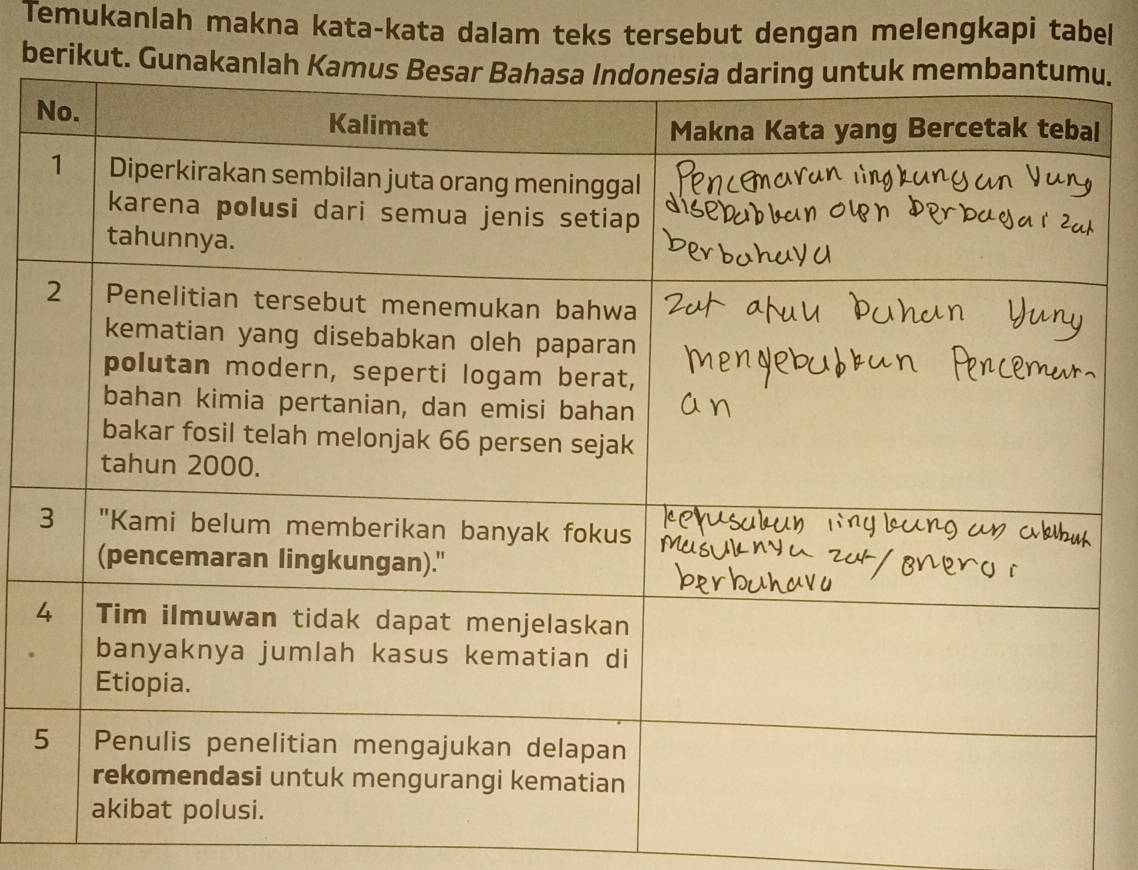 Temukanlah makna kata-kata dalam teks tersebut dengan melengkapi tabel
berikut. Gunakanlah Kamus Besar Bahasa Indonesia daring untuk membantumu.
No. Kalimat Makna Kata yang Bercetak tebal
1 Diperkirakan sembilan juta orang meninggal
karena polusi dari semua jenis setiap
tahunnya.
Pencemaran lingkungan yang
disebabkan oleh berbagai zat
berbahaya
2 Penelitian tersebut menemukan bahwa
kematian yang disebabkan oleh paparan
polutan modern, seperti logam berat,
bahan kimia pertanian, dan emisi bahan
bakar fosil telah melonjak 66 persen sejak
tahun 2000.
Zat atau bahan yang
menyebabkan Pencemar-
an
3 "Kami belum memberikan banyak fokus
(pencemaran lingkungan)."
kerusakan lingkungan akibat
Masuknya zat/energi
berbahaya
4 Tim ilmuwan tidak dapat menjelaskan
banyaknya jumlah kasus kematian di
Etiopia.
5 Penulis penelitian mengajukan delapan
rekomendasi untuk mengurangi kematian
akibat polusi.